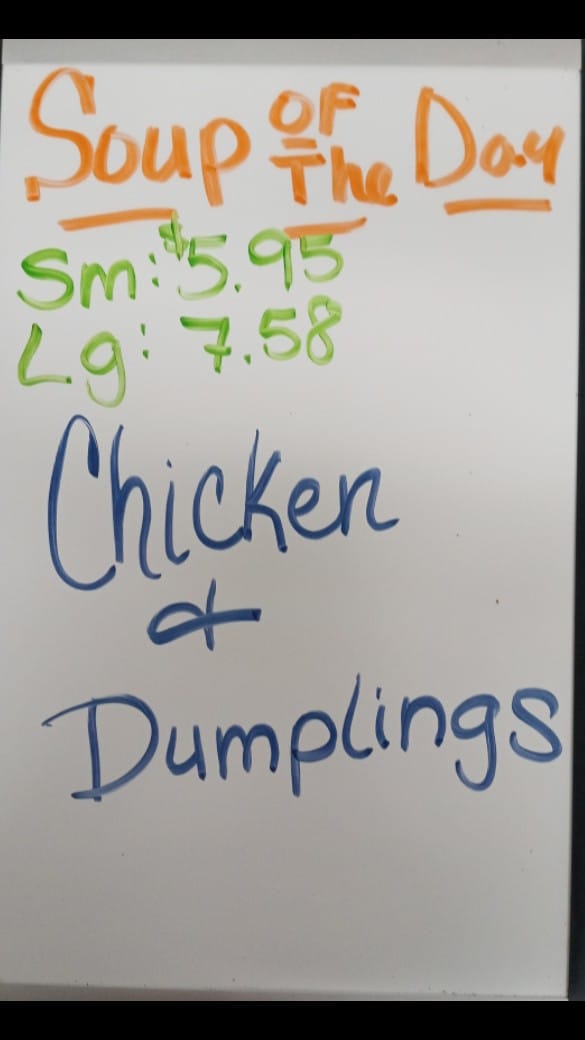 Soup OF The Day
Sm: $5.95
Lg: 7.58
Chicken
&
Dumplings